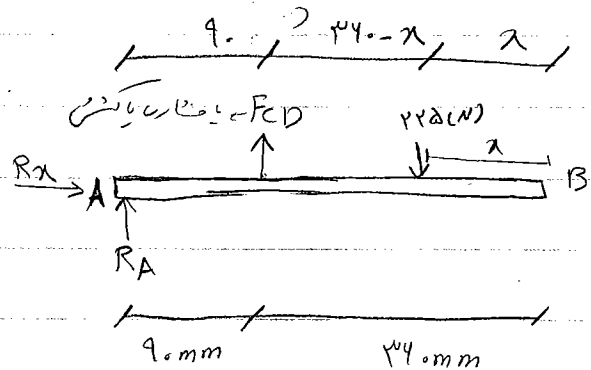 ۹۰ ۳۶۰-x x
یا فشاری یا کششی FCD ۲۲۵(N) x
Rx A B
RA
۹۰mm ۳۶۰mm